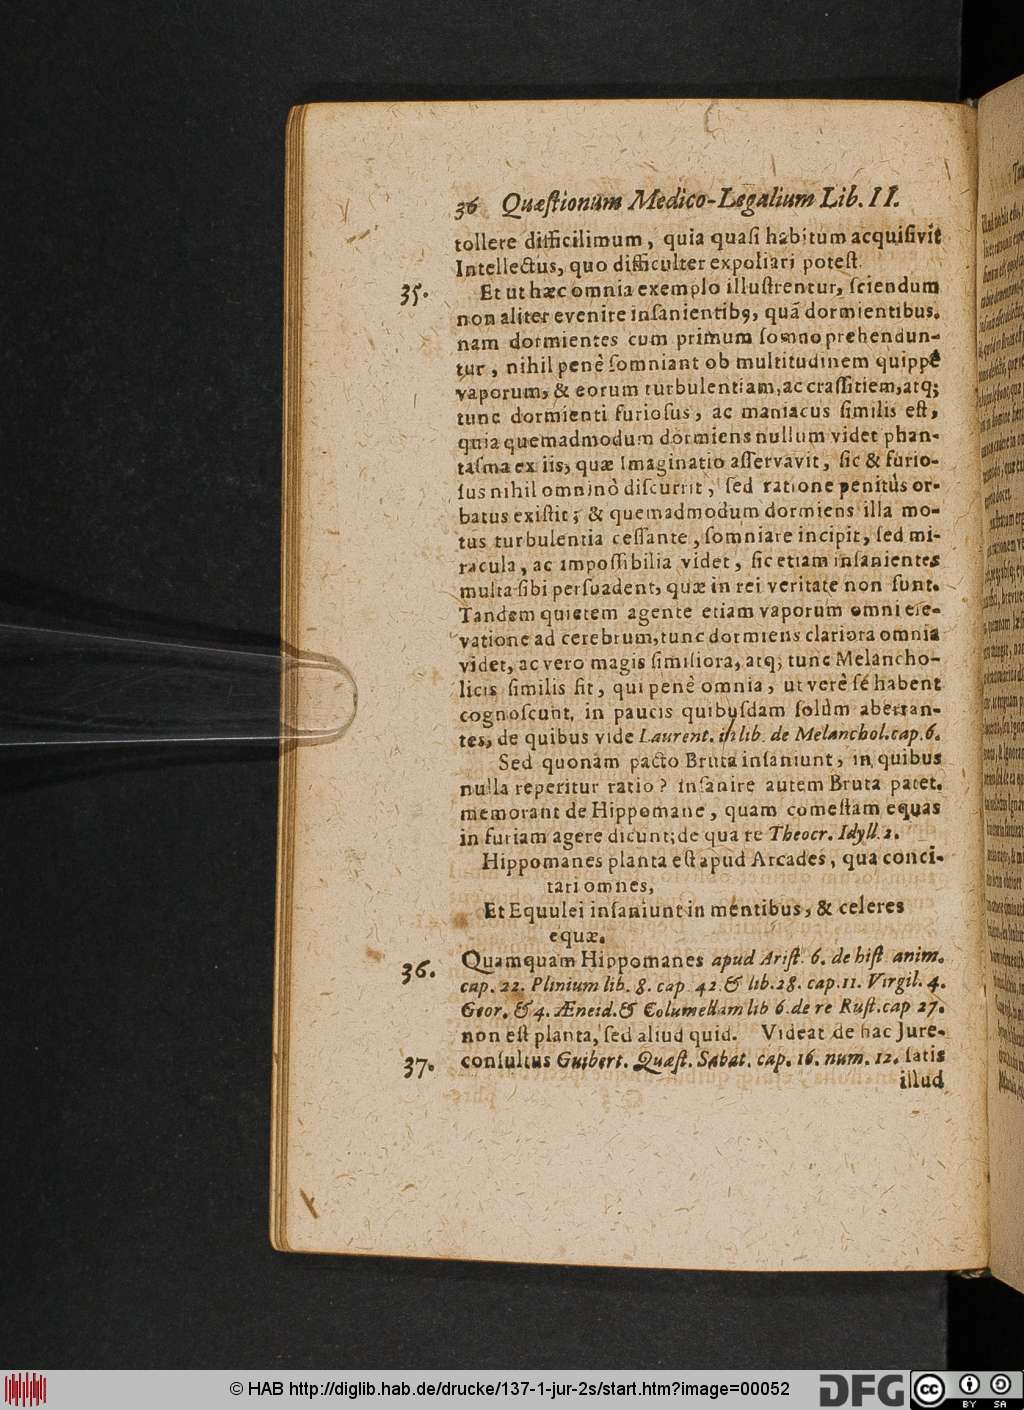 36 Quæſtionum Medico-Legalium Lib. II.
tollere difficilimum, quia quaſi habitum acquiſivit
Intellectus, quo difficulter expoliari poteſt.
35. Et ut hæc omnia exemplo illuſtrentur, ſciendum
non aliter evenire inſanientibꝰ, quã dormientibus.
nam dormientes cum primum ſomno prehendun-
tur, nihil penè ſomniant ob multitudinem quippe
vaporum, & eorum turbulentiam, ac craſſitiem, atq;
tunc dormienti furioſus, ac maniacus ſimilis eſt,
quia quemadmodum dormiens nullum videt phan-
taſma ex iis, quæ Imaginatio aſſervavit, ſic & furio-
ſus nihil omninò diſcurrit, ſed ratione penitùs or-
batus exiſtit; & quemadmodum dormiens illa mo-
tus turbulentia ceſſante, ſomniare incipit, ſed mi-
racula, ac impoſſibilia videt, ſic etiam inſanientes
multa ſibi perſuadent, quæ in rei veritate non ſunt.
Tandem quietem agente etiam vaporum omni ele-
vatione ad cerebrum, tunc dormiens clariora omnia
videt, ac vero magis ſimiliora, atq; tunc Melancho-
licis ſimilis fit, qui penè omnia, ut verè ſé habent
cognoſcunt, in paucis quibuſdam ſolùm aberran-
tes, de quibus vide Laurent. in lib. de Melanchol. cap. 6.
Sed quonam pacto Bruta inſaniunt, in quibus
nulla reperitur ratio? Inſanire autem Bruta patet.
memorant de Hippomane, quam comeſtam equas
in furiam agere dicunt; de qua re Theocr. Idyll. 2.
Hippomanes planta eſt apud Arcades, qua conci-
tari omnes,
Et Equulei inſaniunt in mentibus, & celeres
equæ.
36. Quamquam Hippomanes apud Ariſt. 6. de hiſt. anim.
cap. 22. Plinium lib. 8. cap. 42. & lib. 28. cap. 11. Virgil. 4.
Geor. & 4. Æneid. & Columellam lib 6. de re Ruſt. cap 27.
non eſt planta, ſed aliud quid. Videat de hac Jure-
37. conſultus Guibert. Quæſt. Sabat. cap. 16. num. 12. ſatis
illud
© HAB http://diglib.hab.de/drucke/137-1-jur-2s/start.htm?image=00052
DFG
cc BY SA